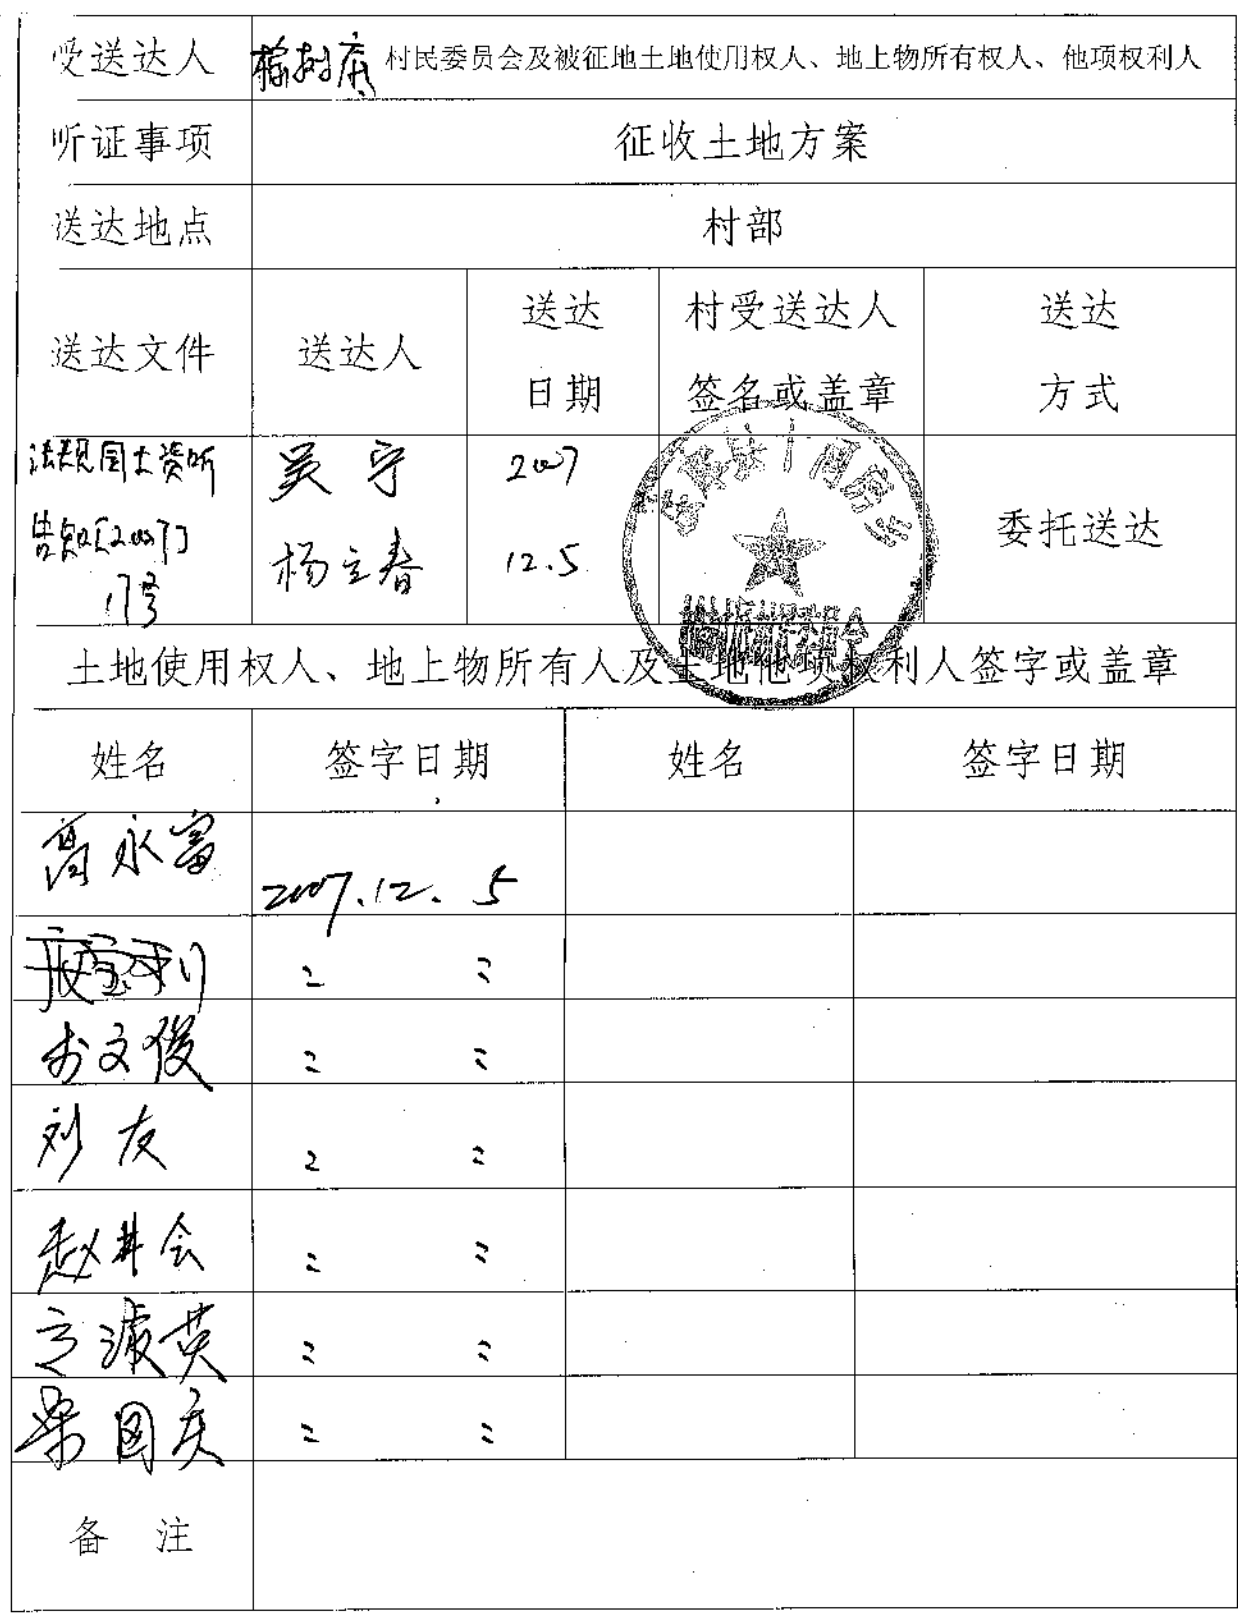 受送达人 榆树底 村民委员会及被征地土地使用权人、地上物所有权人、他项权利人
听证事项 征收土地方案
送达地点 村部
送达文件 送达人 送达日期 村受送达人签名或盖章 送达方式
国土资听 吴守 2007
告知[2007] 杨立春 12.5 委托送达
17号
土地使用权人、地上物所有人及土地他项权利人签字或盖章
姓名 签字日期 姓名 签字日期
高永富 2007.12.5
宝利 〃 〃
文俊 〃 〃
刘友 〃 〃
赵井会 〃 〃
英 〃 〃
国庆 〃 〃
备注